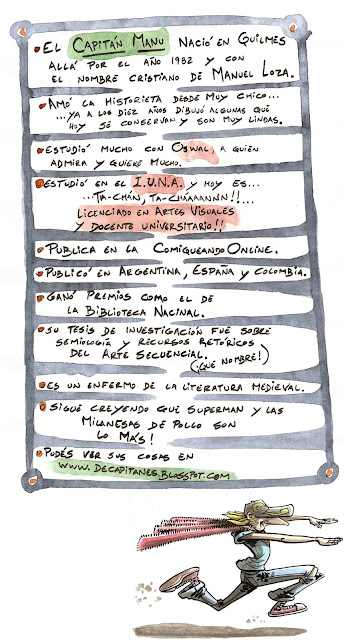 • El Capitán Manu Nació en Quilmes
allá por el año 1982 y con
el nombre cristiano de Manuel Loza.
• Amó la historieta desde muy chico...
...ya a los diez años dibujó algunas que
hoy se conservan y son muy lindas.
• Estudió mucho con Oswal a quien
admira y quiere mucho.
• Estudió en el I.U.N.A. y hoy es...
...Ta-chán, ta-cháaaannn!!...
Licenciado en Artes Visuales
y docente universitario!!
• Publica en la Comiqueando Online.
• Publicó en Argentina, España y Colombia.
• Ganó premios como el de
la Biblioteca Nacinal.
• Su tesis de investigación fue sobre
semiología y recursos retóricos
del Arte Secuencial.
(¡Qué nombre!)
• Es un enfermo de la literatura medieval.
• Sigue creyendo que Superman y las
milanesas de pollo son
lo más!
• Podés ver sus cosas en
www.decapitanes.blosspot.com